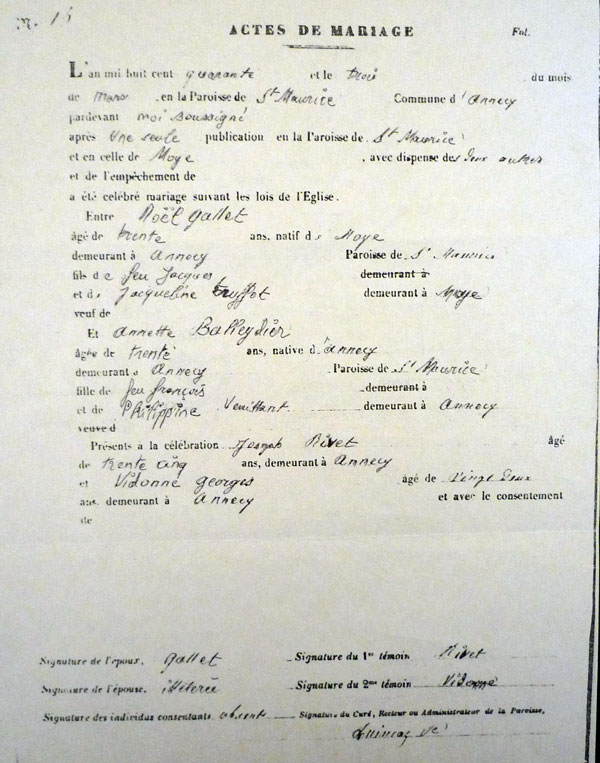 N. 15
ACTES DE MARIAGE
Fol.
L'an mil huit cent quarante et le trois du mois
de mars, en la Paroisse de St Maurice Commune d'Annecy
pardevant moi Soussigné
après Une seule publication en la Paroisse de St Maurice
et en celle de Moye, avec dispense des deux autres
et de l'empêchement de
a été célébré mariage suivant les lois de l'Eglise.
Entre Noël Gallet
âgé de trente ans, natif de Moye
demeurant à Annecy Paroisse de St Maurice
fils de feu Jacques demeurant à
et de Jacqueline truffot demeurant à Moye
veuf de
Et Annette Balleydier
âgée de trente ans, native d'annecy
demeurant à Annecy Paroisse de St Maurice
fille de feu françois demeurant à
et de Philippine Venillant demeurant à Annecy
veuve d
Présents à la célébration Joseph Rivet âgé
de trente cinq ans, demeurant à Annecy
et Vidonne georges âgé de Vingt deux
ans, demeurant à Annecy et avec le consentement
de
Signature de l'époux, Gallet
Signature du 1er témoin Rivet
Signature de l'épouse, illiterée
Signature du 2me témoin Vidonne
Signature des individus consentants absents
Signature du Curé, Recteur ou Administrateur de la Paroisse,